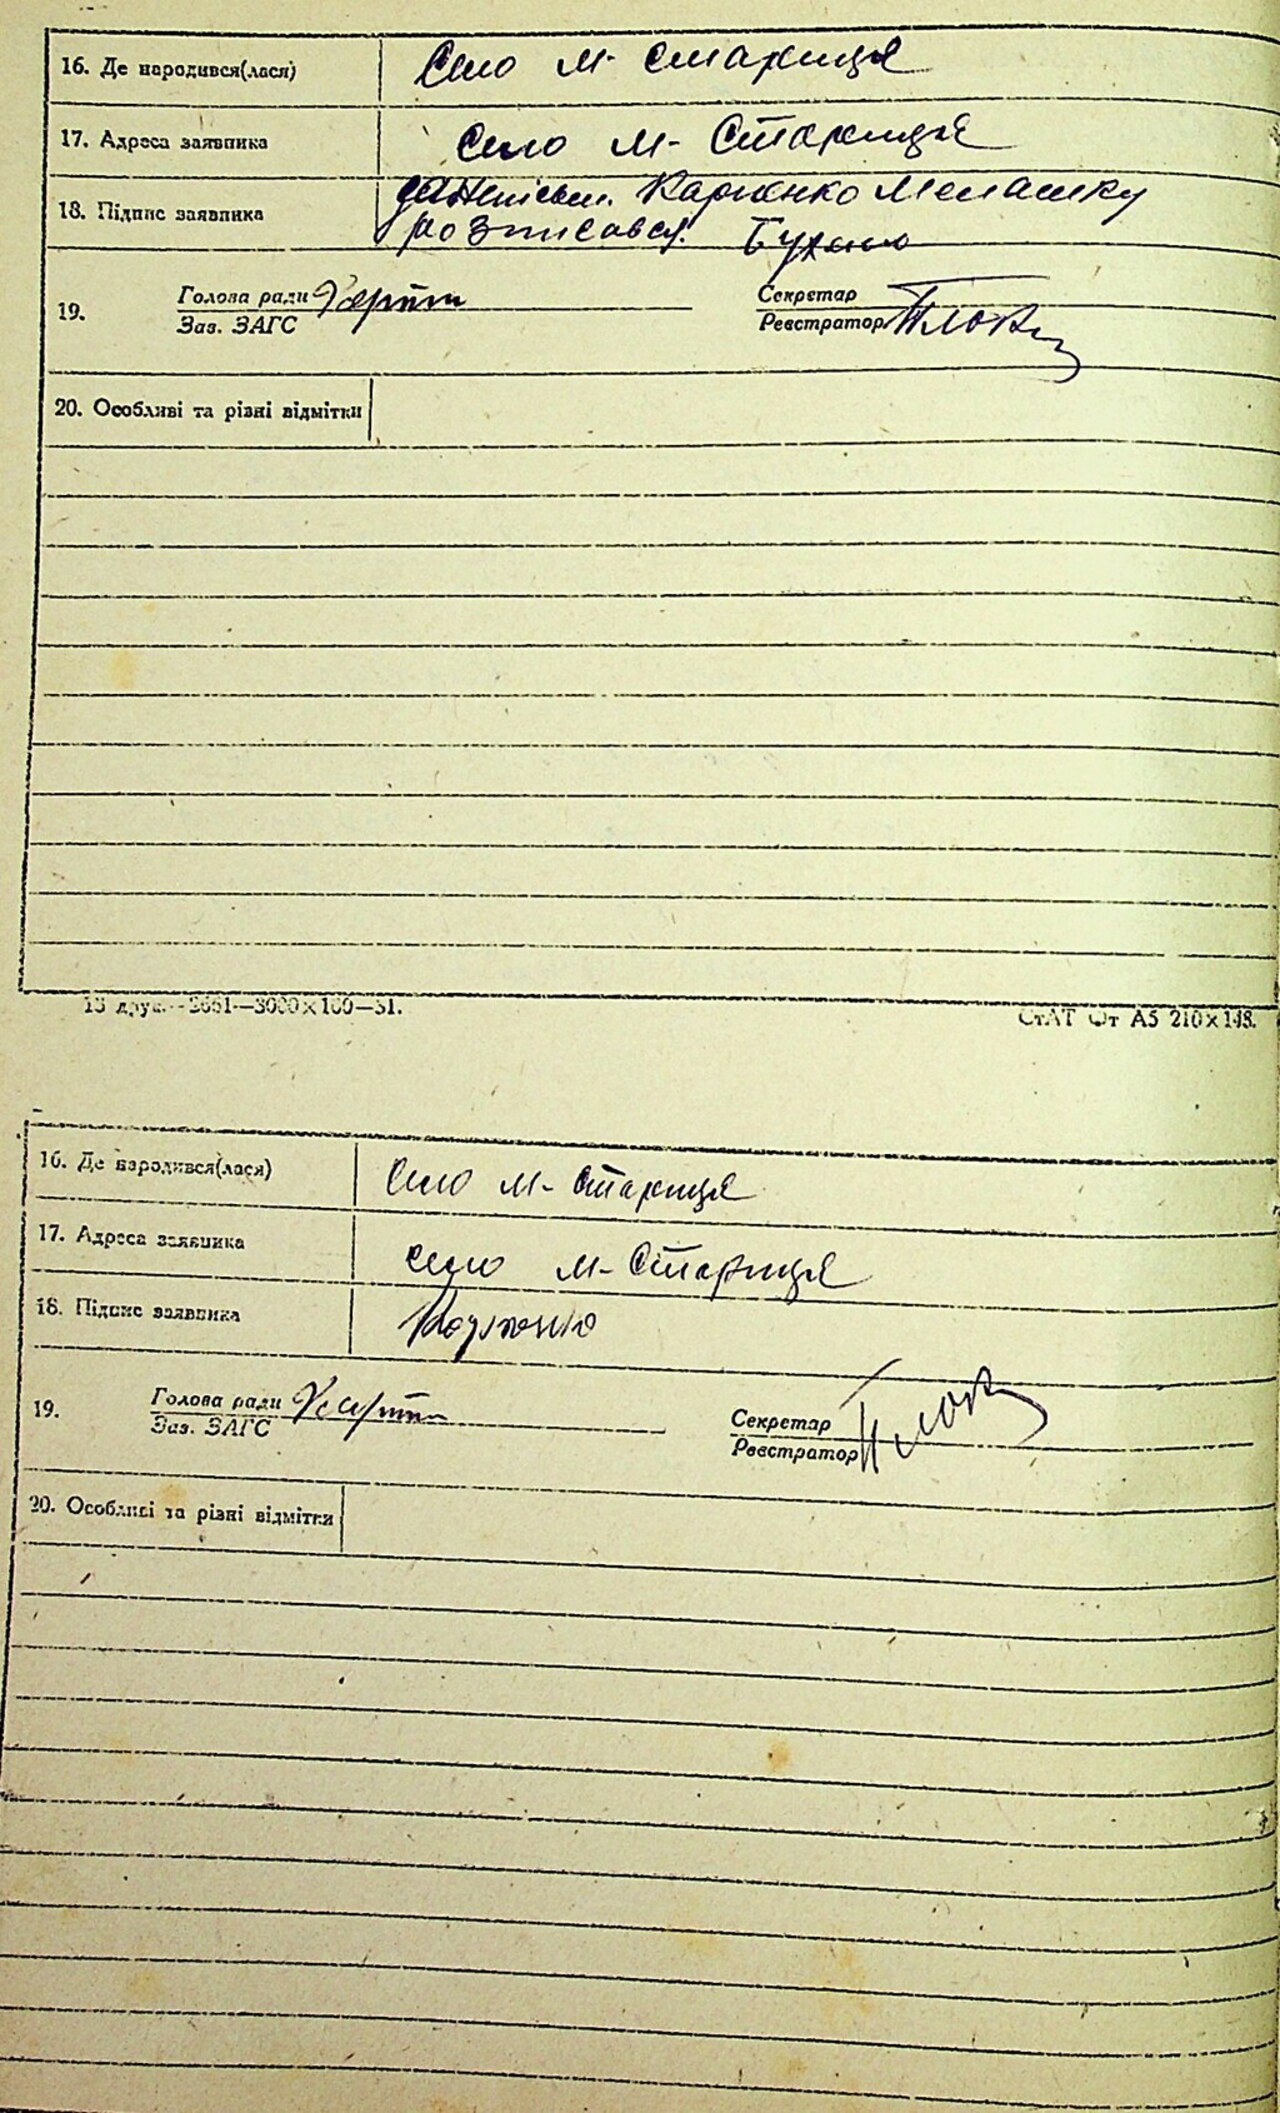 16. Де народився(лася) Село М- Стариця
17. Адреса заявника Село М- Стариця
18. Підпис заявника Карпенко Мелашку
розписався.
Голова ради Секретар
19. Зав. ЗАГС Реєстратор
20. Особливі та різні відмітки
13 друк.—2661—3000×100—31. СтАТ От А5 210×148.
16. Де народився(лася) Село М- Стариця
17. Адреса заявника Село М- Стариця
18. Підпис заявника
Голова ради Секретар
19. Зав. ЗАГС Реєстратор
20. Особливі та різні відмітки